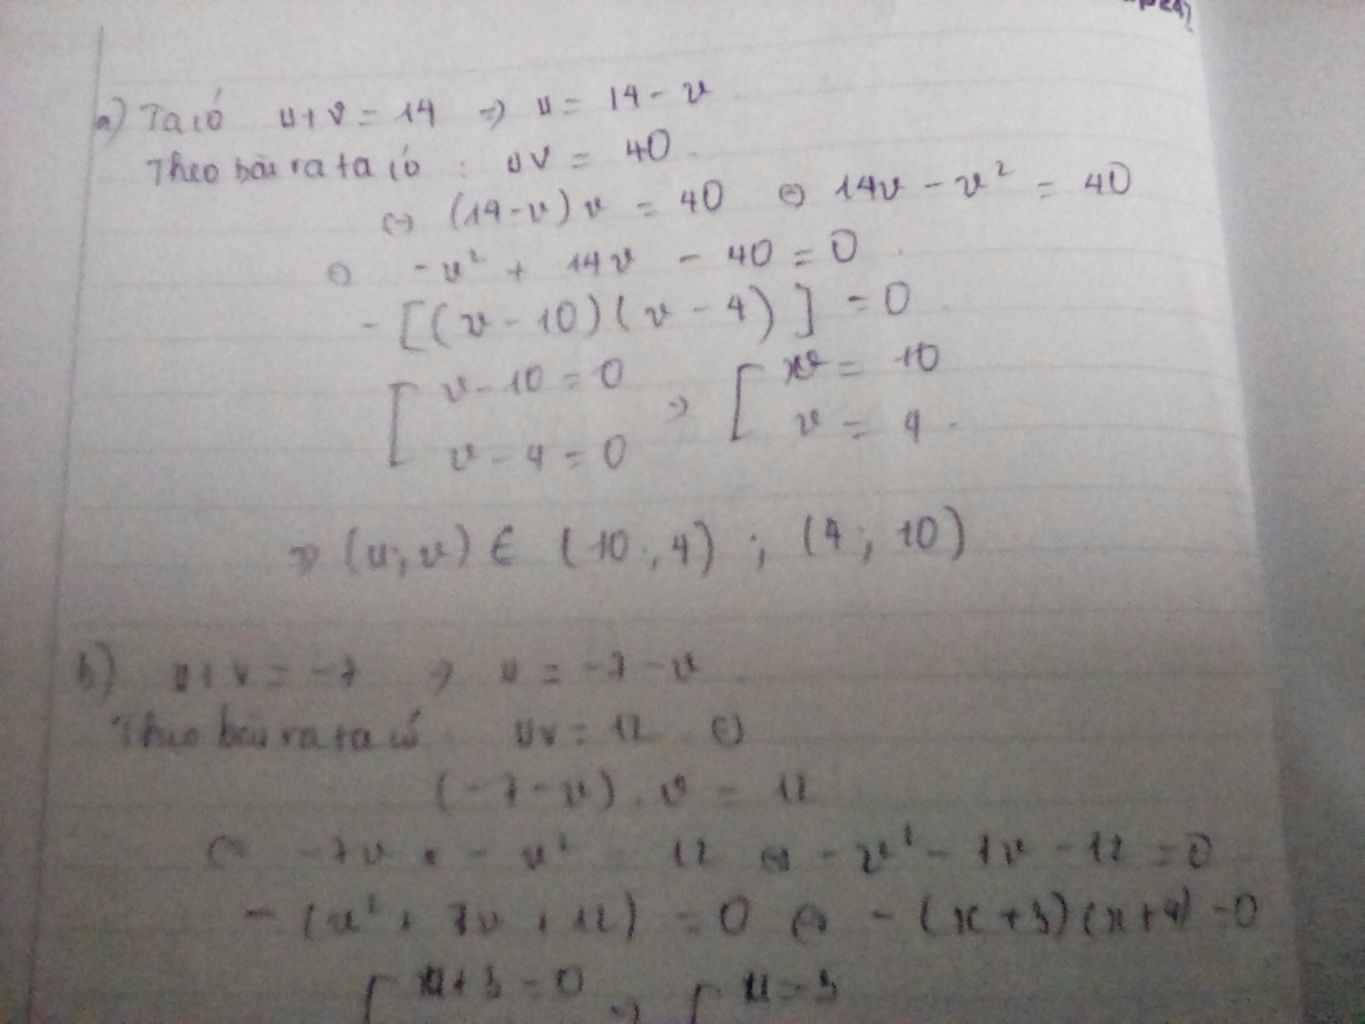 a) Ta có u + v = 14 => u = 14 - v
Theo bài ra ta có : uv = 40.
<=> (14-v) v = 40 <=> 14v - v² = 40
<=> -v² + 14v - 40 = 0
- [(v - 10)(v - 4)] = 0
[ v - 10 = 0 => [ v = 10
v - 4 = 0 v = 4.
=> (u; v) ∈ (10; 4) ; (4; 10)
b) u + v = -7 => u = -7 - v
Theo bài ra ta có uv = 12 <=>
(-7 - v) . v = 12
<=> -7v - v² = 12 <=> -v² - 7v - 12 = 0
- (v² + 7v + 12) = 0 <=> - (x + 3)(x + 4) = 0